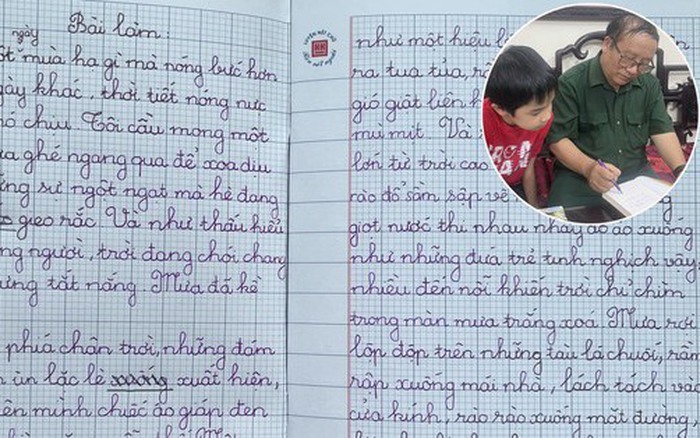 ngày
Bài làm:
mùa hạ gì mà nóng bức hơn
khác, thời tiết nóng nực
chịu. Tôi cầu mong một
ghé ngang qua để xoa dịu
sự ngột ngạt mà hè đang
gieo rắc. Và như thấu hiểu
người, trời đang chói chang
tắt nắng. Mưa đã kề
phía chân trời, những đám
ùn lặc lè xuất hiện,
mình chiếc áo giáp đen
như một hiệu
ra tua tủa,
gió giật liên
mù mịt. Và
lớn từ trời cao
rào đổ sầm sập
giọt nước thi nhau nhảy ào ào xuống
như những đứa trẻ tinh nghịch vậy.
nhiều đến nỗi khiến trời chỉ chìm
trong màn mưa trắng xoá. Mưa rơi
lộp độp trên những tàu lá chuối, rần
rập xuống mái nhà, lách tách
cửa kính, rào rào xuống mặt đường